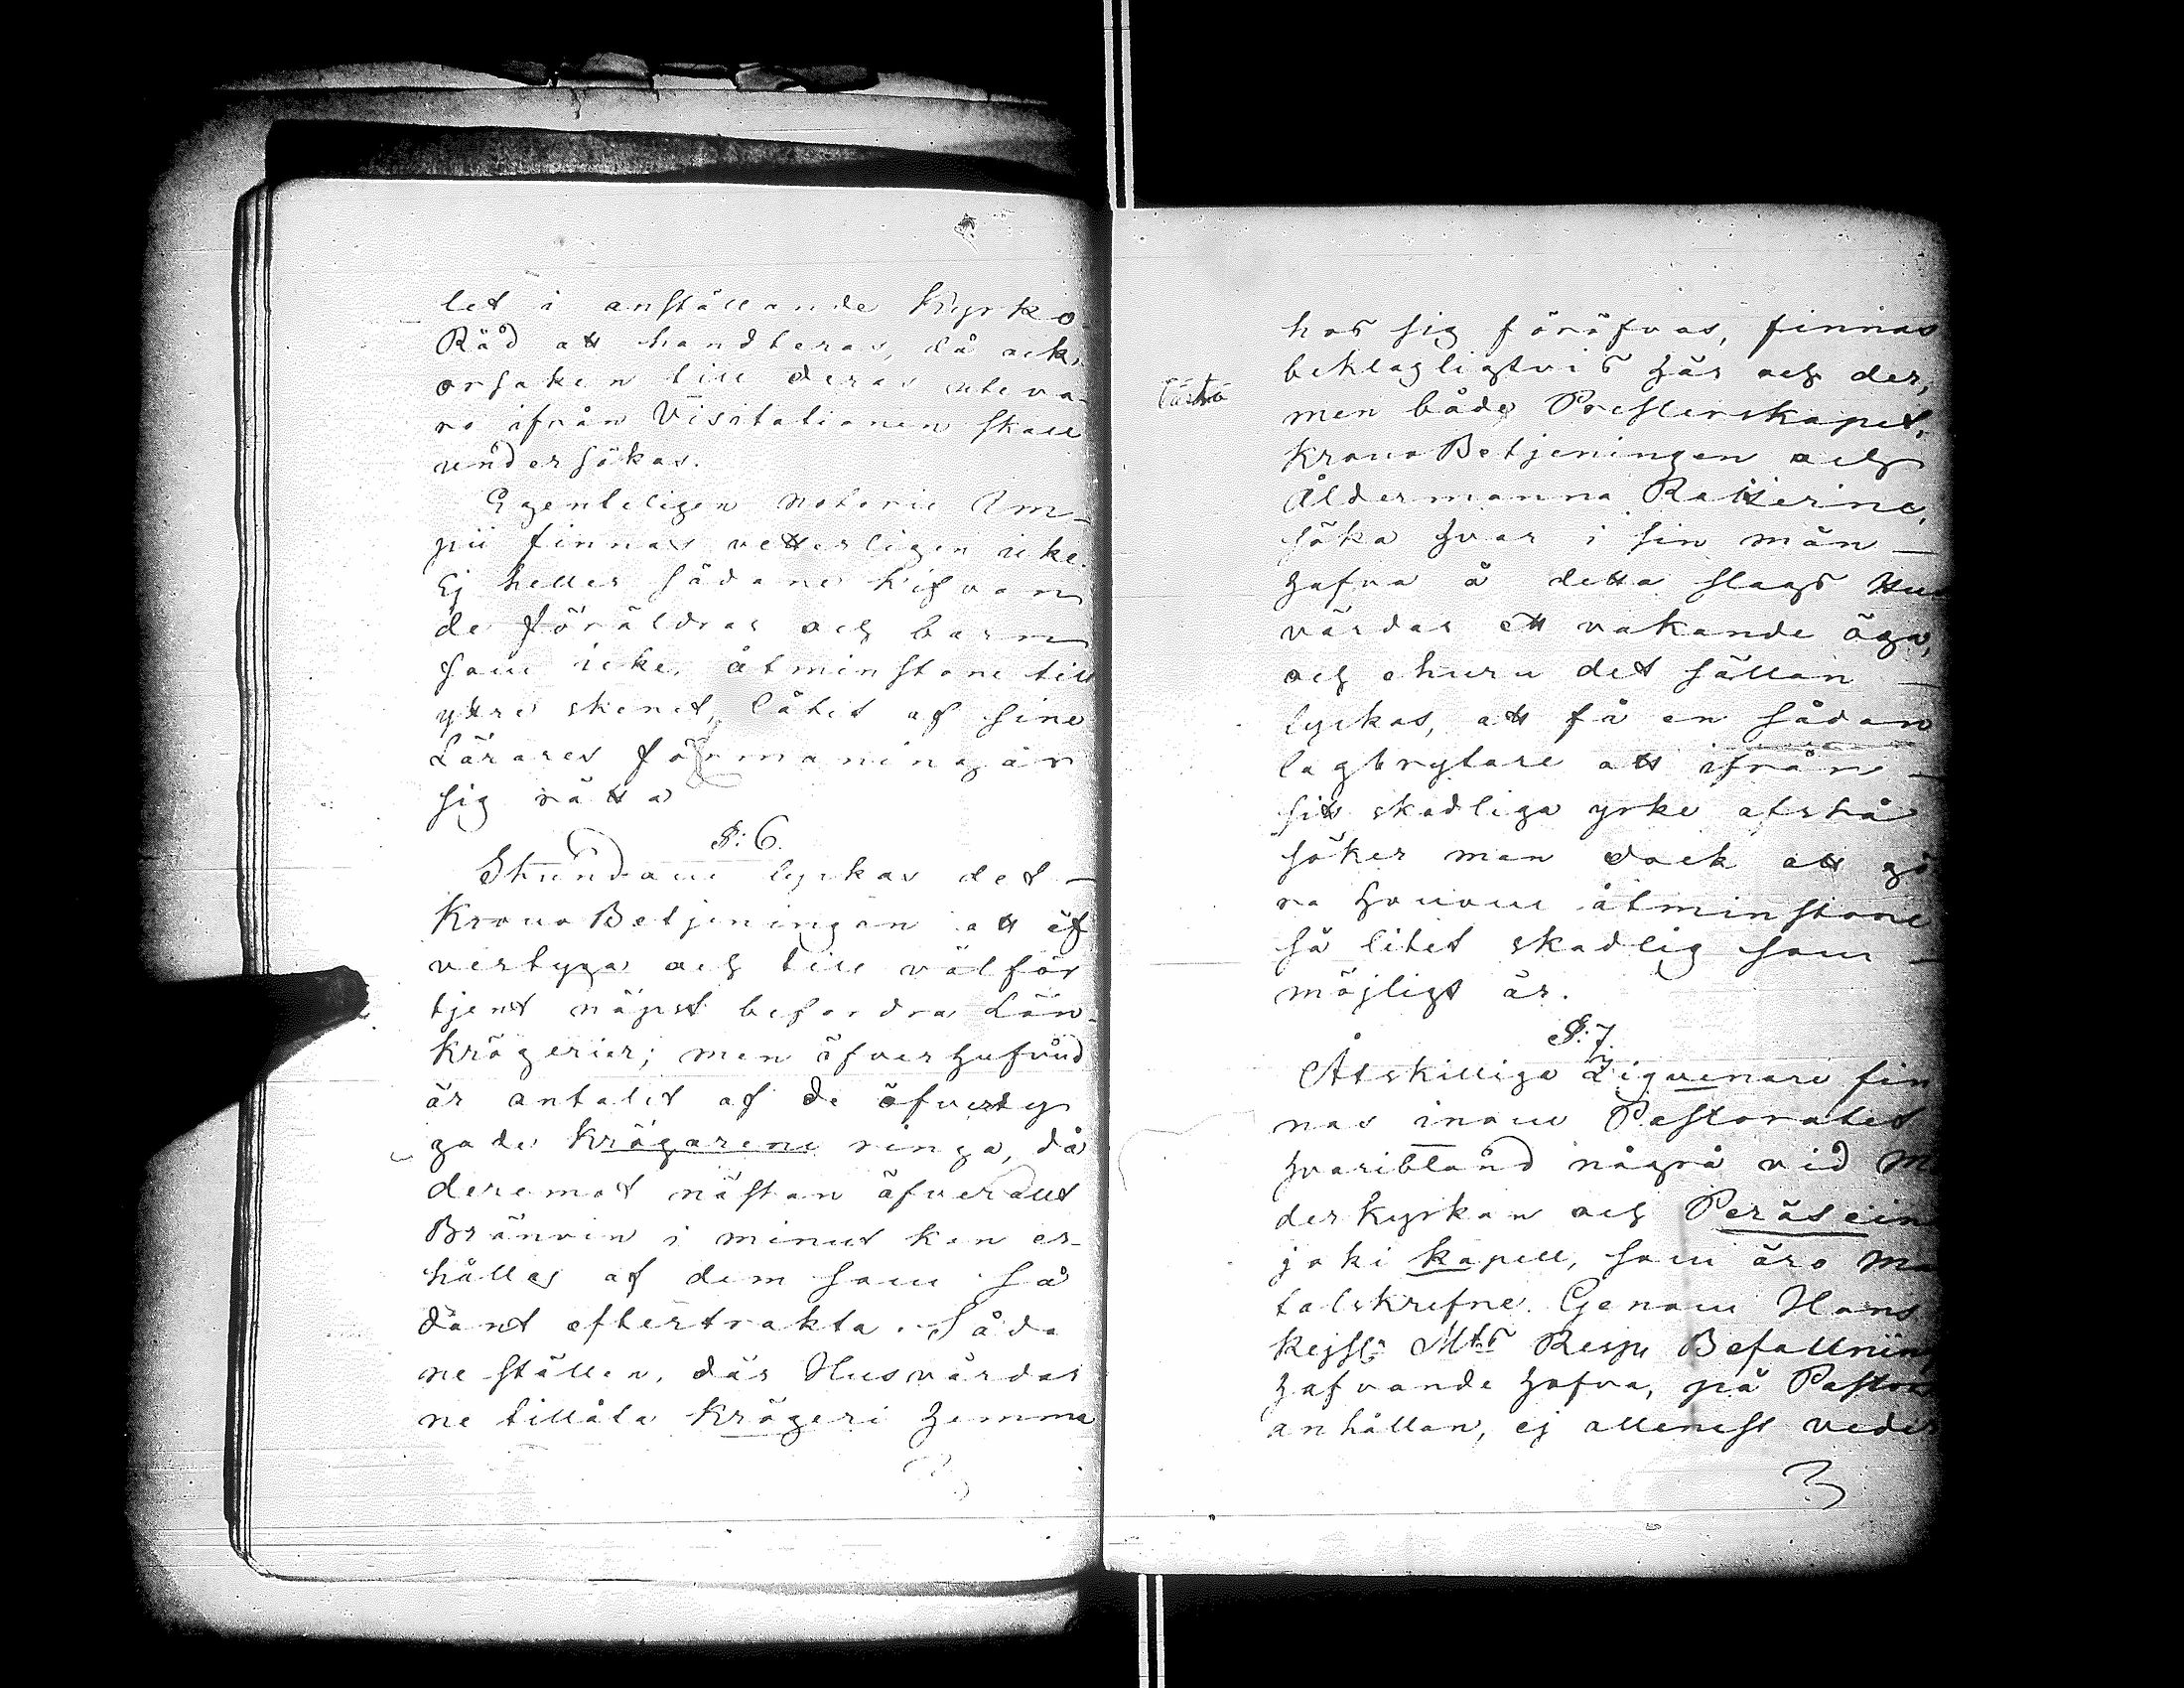 let i anställande Kyrko
Råd att handteras, då ock
orsaken till deras uteva-
ro ifrån Visitationen skall
undersökas.
Egenteligen notorie Im-
pii finnas vetterligen icke.
Ej heller sådane kifvan
de föräldrar och barn
som icke, åtminstone till
yttre skenet, låtit af sine
Lärares förmaningar
sig rätta
§: 6.
Stundom lyckas det –
KronoBetjeningen att öf
vertyga och till välför
tjent näpst befordra Lön-
krögerier; men öfverhufvud
är antalet af de öfverty
gade Krögarene ringa, då
deremot nästan öfverallt
Bränvin i minut kan er-
hållas af dem som så
dant eftertrakta. Såda
ne ställen, där Husvärdar
ne tillåta Krögeri hemma
hos sig föröfvas, finnas
beklagligtvis här och der,
men både Presterskapet,
KronoBetjeningen och
Åldermanna Rätterne,
söka hvar i sin mån –
hafva å detta slags Hus
värdar ett vakande öga,
och ehuru det sällan –
lyckas, att få en sådan
lagbrytare att ifrån –
sitt skadliga yrke afstå
söker man dock att gö
ra honom åtminstone
så litet skadlig som –
möjligt är.
§: 7.
Åtskillige Ziguenare fin
nas inom Pastoratet
hvaribland några vid Mo
derkyrkan och Peräsein
joki kapell, som äro Man
talskrifne. Genom Hans
Kejsl: Mts Resp Befallning
hafvande hafva, på Pastors
anhållan, ej allenast veder